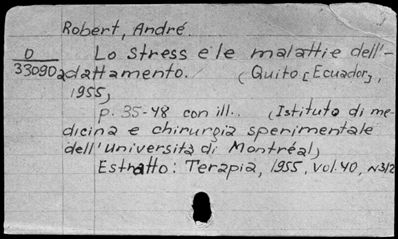 Robert, André.
D Lo stress e le malattie dell'-
33090 adattamento. (Quito [Ecuador],
1955)
p. 35-48 con ill. (Istituto di me-
dicina e chirurgia sperimentale
dell'Università di Montréal)
Estratto: Terapia, 1955, vol. 40, N312